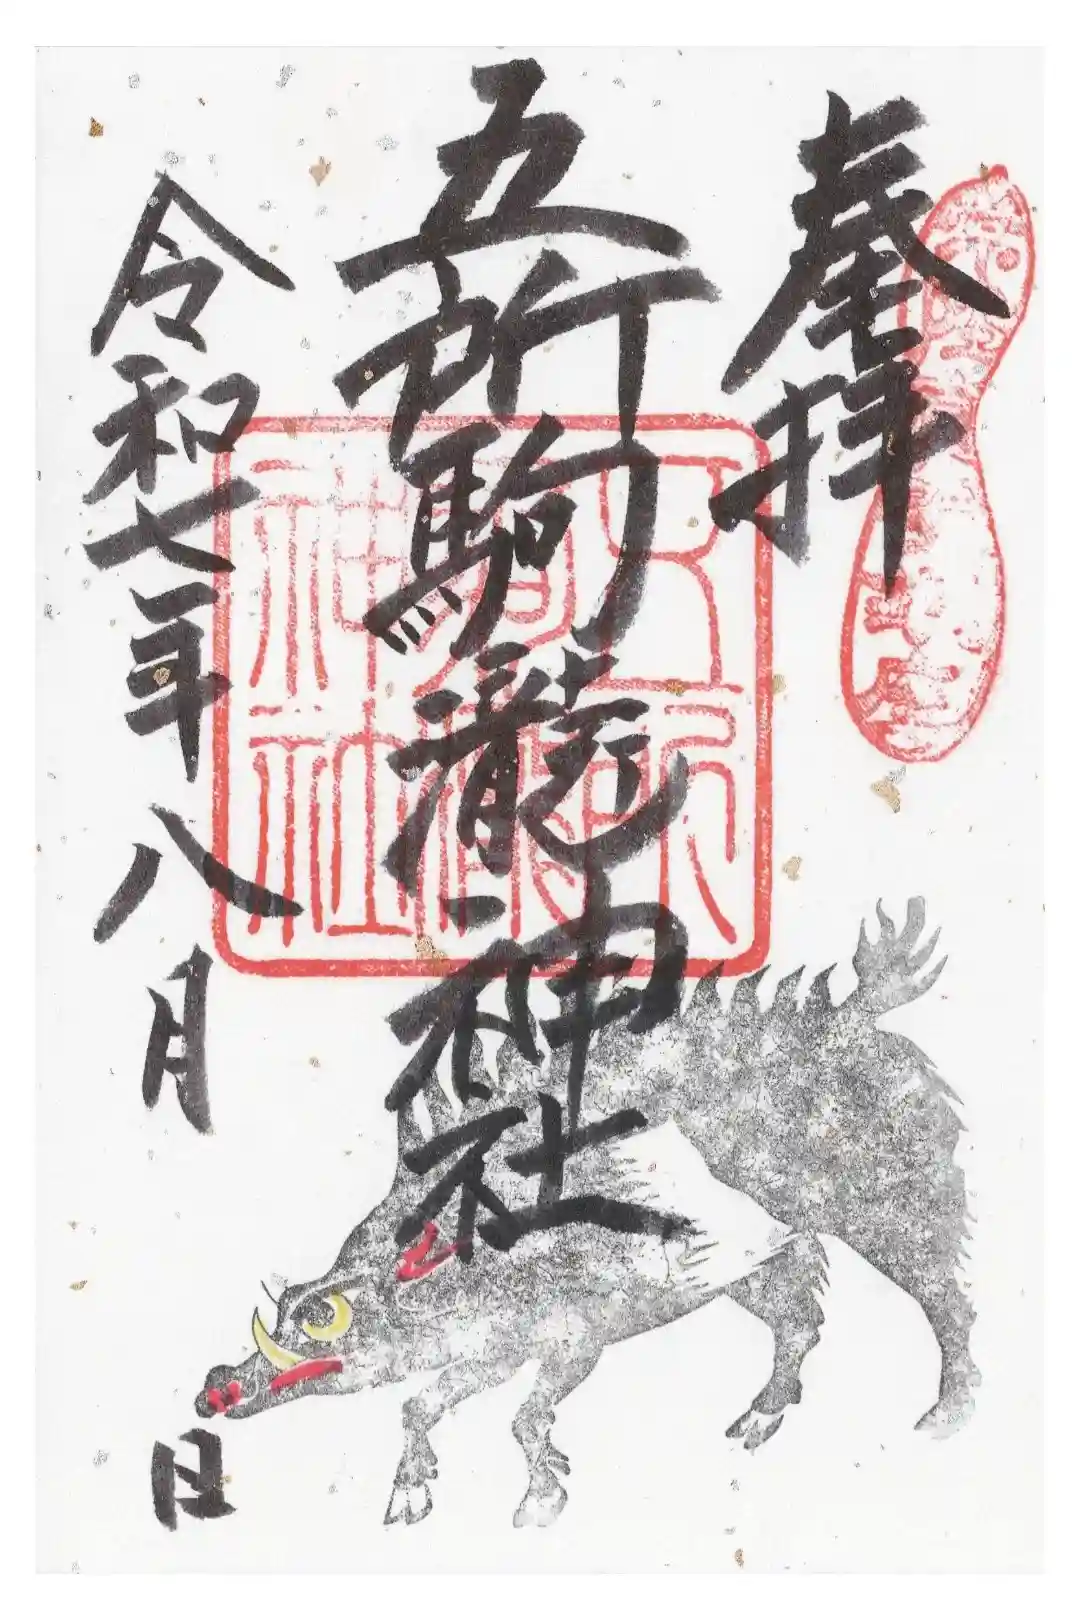 奉拝
五所駒瀧神社
令和七年八月
日